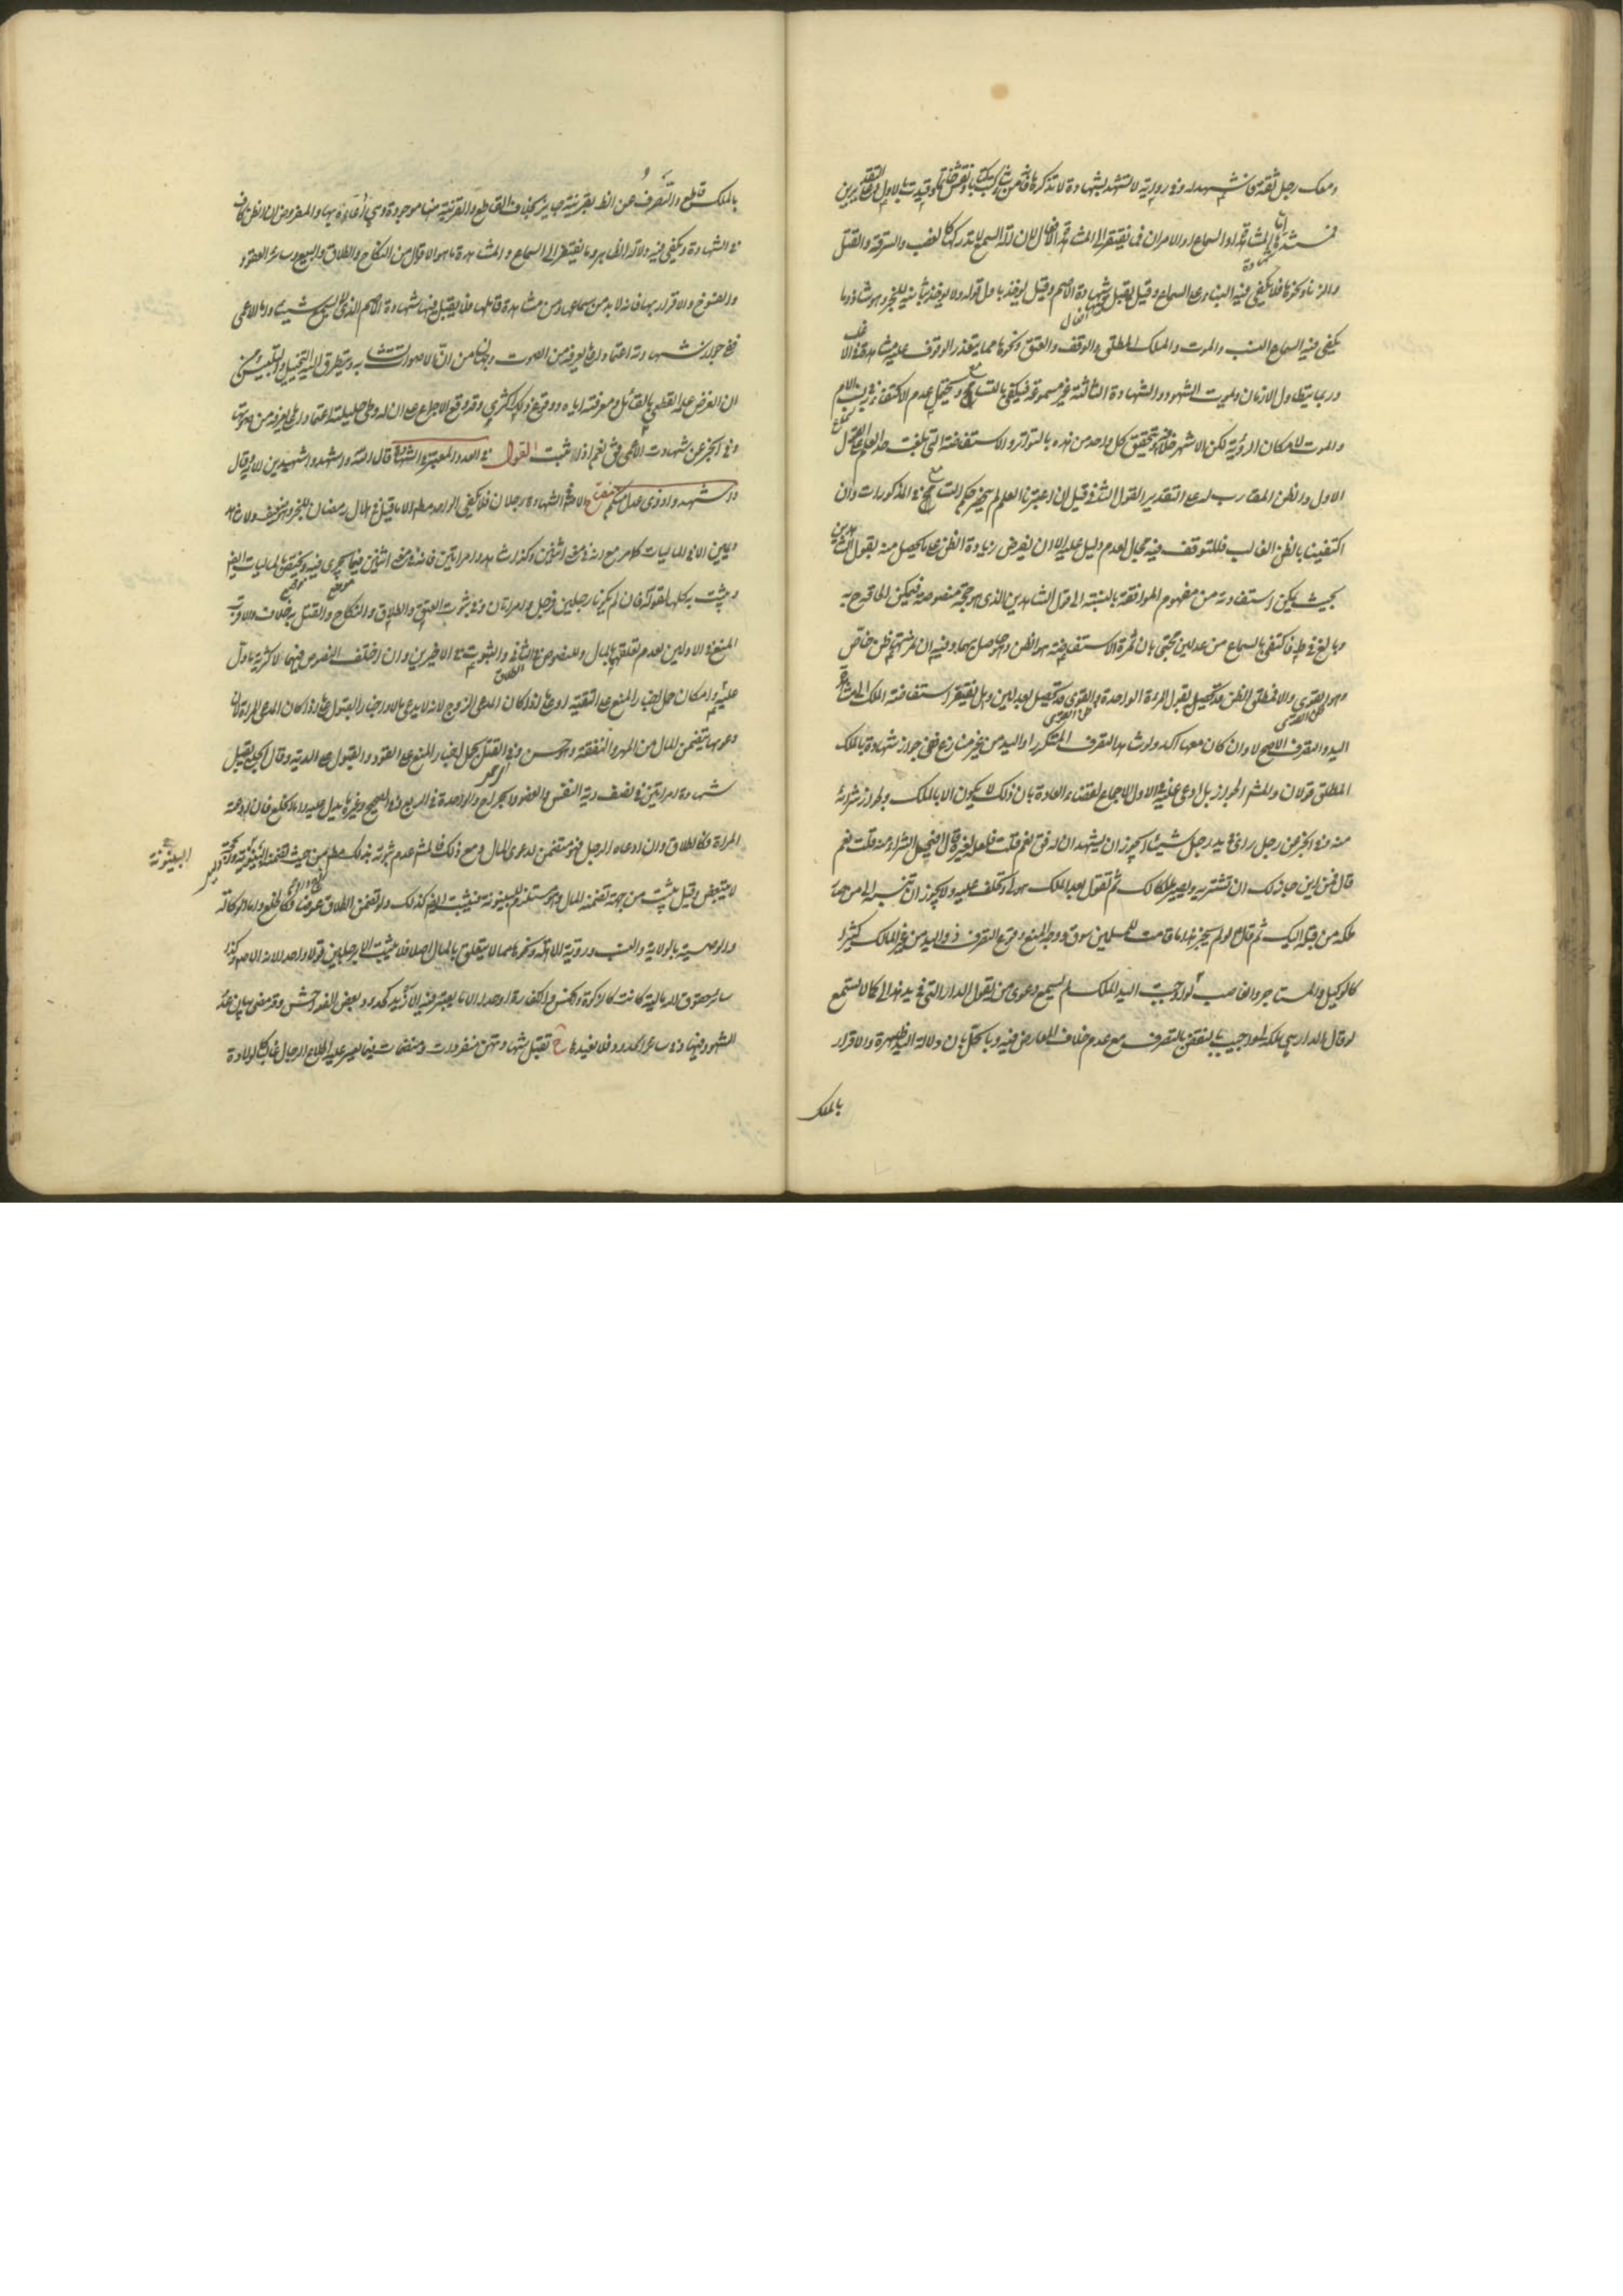 ومعك رجل ثقة فاشهد له وفي رواية لا تشهد بشهادة لا تذكرها فانه من شاء كتب كتابا ونقش خاتما
فمستندها اما المشاهدة او السماع او الامران فما يفتقر الى المشاهدة الافعال لان آلة السمع لا تدركها كالغصب والسرقة والقتل
والزنا ونحوها فلا يكفي فيه البناء على السماع وقيل يقبل شهادة الاصم وقيل يؤخذ باول قوله ولا يؤخذ بثانيه للخبر وهو شاذ وما
يكفي فيه السماع النسب والموت والملك المطلق والوقف والعتق ونحوها مما يتعذر الوقوف عليه مشاهدة في الاغلب
وربما يتطاول الازمان ويموت الشهود والشهادة الثالثة غير مسموعة فيكفي بالتسامع ويحتمل عدم الاكتفاء في نسب الام
والموت لامكان الرؤية لكن الاشهر خلافه ويتحقق كل واحد من هذه بالتواتر والاستفاضة التي بلغت حد العلم على القول
الاول والظن المقارب له على التقدير القول الثاني قيل ان اعتبرنا العلم لم يخرج حكم التسامع في المذكورات وان
اكتفينا بالظن الغالب فللتوقف فيه مجال لعدم دليل عليه الا ان يفرض زيادة الظن على ما يحصل منه بقول الشاهدين
بحيث يمكن استفادته من مفهوم الموافقة بالنسبة الى قول الشاهدين الذي هو حجة منصوصة فيمكن الحاقه ح به
وبالغ في ط فاكتفى بالسماع من عدلين محتجا بان ثمرة الاستفاضة هو الظن وهو حاصل بهما وفيه ان ثمرتها ظن خاص
وهو القوي والا فمطلق الظن قد يحصل بقول المرءة الواحدة والقوي قد يحصل بعدلين وهل يفتقر استفاضة الملك الى مشاهدة
اليد والتصرف الاصح لا وان كان معها آكد ولو شاهد التصرف المتكرر او اليد من غير منازع ففي جواز شهادته بالملك
المطلق قولان والمشهور الجواز بل ادعي عليه في الاول الاجماع لقضاء العادة بان ذلك لا يكون الا بالملك ولجواز شرائه
منه وفي الخبر عن رجل راى في يد رجل شيئا ايجوز ان يشهد انه له قال نعم قلت فلعله لغيره قال افيحل الشراء منه قلت نعم
قال فمن اين جاز لك ان تشتريه ويصير ملكا لك ثم تقول بعد الملك هو لي وتحلف عليه ولا يجوز ان تنسبه الى من صار
ملكه من قبله اليك ثم قال لو لم يجز هذا ما قامت للمسلمين سوق ووجه المنع وقوع التصرف واليد من غير المالك كثيرا
كالوكيل والمستاجر والغاصب لو اوجبت اليد الملك لم يسمع دعوى من يقول الدار التي في يد هذا لي كما لا يسمع
لو قال الدار التي هي ملكه لي واجيب بالنقض بالتصرف مع عدم خلاف المعارض فيه وبالحل بان دلالة اليد ظاهرة والاقرار
بالملك
بالملك قاطع والصرف عن الظاهر بقرينة جايز بخلاف القاطع والقرينة هنا موجودة وهي ادعاءه بها والمفروض ان الظن كاف
في الشهادة ويكفي فيه دلالة الظاهر وما يفتقر الى السماع والمشاهدة ما هو الاقوال من النكاح والطلاق والبيع وسائر العقود
والفسوخ والاقرار بها فانه لا بد من سماعها ومن مشاهدة قائلها فلا يقبل فيها شهادة الاصم الذي لا يسمع شيئا واما الاعمى
ففي جواز شهادته اعتمادا على ما يعرفه من الصوت وجهان من ان الاصوات تتشابه ويتطرق اليها التخييل والتلبيس ومن
ان الغرض علمه القطعي بالقائل ومعرفته اياه ووقوع ذلك اكثري وقد وقع الاجماع على ان له وطي حليلته اعتمادا على ما يعرفه من صوتها
وفي الخبر عن شهادة الاعمى فقال نعم اذا اثبت القول في العدد المعتبر في الشهادة قال الله واستشهدوا شهيدين الآية وقال
واشهدوا ذوي عدل منكم مفتاح الاصل في الشهادة رجلان فلا يكفي الواحد مطلقا الا ما قيل في هلال رمضان للخبر وهو ضعيف ولا شاهد
ويمين الا في الماليات كما مر مع ادلته في اثنين وكذا شاهد وامرأتين فانه في اثنين فيما يجري فيه ويختص بالماليات ايضا
ويثبت بكلها لقوله فان لم يكونا رجلين فرجل وامراتان وفي ثبوت العتق والطلاق والنكاح والقتل به خلاف والاقرب
المنع في الاولين لعدم تعلقهما بالمال وللنصوص في الثاني والثبوت في الاخيرين وان اختلف النصوص فيهما لاكثرية ما دل
عليه وامكان حمل اخبار المنع على التقية او على ما اذا كان المدعي الزوج لانه لا يدعي مالا واخبار القبول على ما اذا كان المدعي المراة لان
دعواها يتضمن المال من المهر والنفقة وهو حسن وفي القتل يحمل اخبار المنع على القود والقبول على الدية وقال الحلبي يقبل
شهادة امرأتين في نصف دية النفس والعضو والجراح والواحدة في الربع وفي الصحيح وغيره ما يدل عليه واما الخلع فان ادعته
المراة فكالطلاق وان ادعاه الرجل فهو متضمن لدعوى المال ومع ذلك فالمشهور عدم ثبوته بذلك مطلقا من حيث تضمنه البينونة والحجة
البينونة
لا يتبعض وقيل يثبت من جهة تضمنه المال وهو مستلزم للبينونة فيثبت ايضا كذلك ولو تضمن الطلاق عوضا فكالخلع واما الوكالة
والوصية بالولاية والنسب ورؤية الاهلة ونحوها مما لا يتعلق بالمال اصلا فلا يثبت الا برجلين قولا واحدا لانه الاصل وكذا
سائر حقوق الله مالية كانت كالزكوة والخمس والكفارة او حدا الا ما يعتبر فيه الازيد كحدود بعض الفواحش وقد مضى بيان عدد
الشهود فيها وفي سائر الحدود فلا نعيدها ح تقبل شهادتهن منفردات ومنضمات فيما يعسر عليه اطلاع الرجال غالبا كالولادة